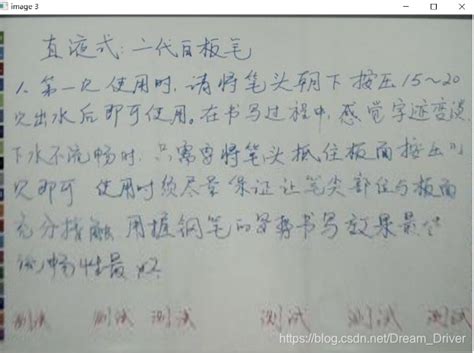 image 3
直液式:二代白板笔
1. 第一次使用时,请将笔头朝下按压15~20
次出水后即可使用。在书写过程中,感觉字迹变淡
下水不流畅时,只需要将笔头抵住板面按压
次即可 使用时须尽量保证让笔尖部位与板面
充分接触 用握钢笔的姿势书写效果最佳
流畅性最好
测试 测试 测试 测试 测试 测试
https://blog.csdn.net/Dream_Driver